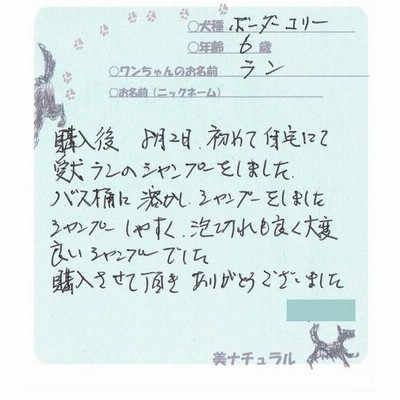 ○犬種 ボーダーコリー
○年齢 6 歳
○ワンちゃんのお名前 ラン
○お名前（ニックネーム）
購入後 8月2日、初めて自宅にて
愛犬ランのシャンプーをしました.
バス桶に溶かし、シャンプーをしました
シャンプーしやすく、泡切れも良く大変
良いシャンプーでした
購入させて頂き ありがとうございました
美ナチュラル